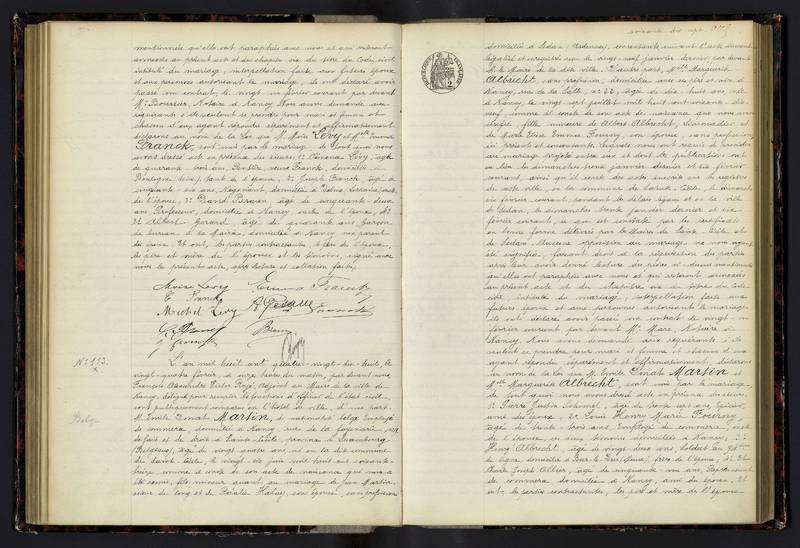 mentionnée qu'elle ont paraphées avec nous et qui resteront
annexées au présent acte et du chapitre six du titre du Code civil
intitulé du mariage, interpellation faite aux futurs époux
et aux personnes autorisant le mariage, ils ont déclaré avoir
passé un contrat, le vingt un février courant par devant
Me Boursier, Notaire à Nancy. Nous avons demandé aux
requérants s'ils veulent se prendre pour mari et femme et
chacun d'eux ayant répondu séparément et affirmativement
déclarons au nom de la loi que M. Moïse Lévy et Melle Emma
Franck, sont unis par le mariage. De tout quoi nous
avons dressé acte en présence des sieurs: Lévy, âgé
de quarante trois ans,
cinquante six ans, Négociant, domicilié à
de l'épouse, 3° David Braun, âgé de cinquante deux
ans, Professeur, domicilié à Nancy, oncle de l'époux, et
4° Albert Gerard, âgé de quarante ans, Garçon
de bureau à la Mairie, domicilié à Nancy, non parent
des époux. Et ont, les parties contractantes, le père de l'époux,
les père et mère de l'épouse et les témoins, signé avec
nous le présent acte, après lecture et collation faites.
Moïse Levy Emma Franck
E Franck
Michel Levy
Braun
N° 113.
L'an mil huit cent quatre-vingt-dix-huit, le
vingt-quatre février, à onze heures du matin, par devant nous
François Alexandre Victor Adjoint au Maire de la ville de
Nancy, délégué pour remplir les fonctions d'officier de l'état civil,
sont publiquement comparus en l'hôtel de ville, d'une part,
M. Emile Donat Martin, de nationalité belge, Employé
de commerce, domicilié à Nancy, rue de la
de fait et de droit à Sainte-Cécile, province de Luxembourg
(Belgique), âgé de vingt quatre ans, né en la dite commune
de Sainte Cécile, le vingt six juin mil huit cent soixante-
treize, comme il conste de son acte de naissance qui nous a
été fourni, fils mineur quant au mariage de Jean Martin,
Belge
domiciliés à Sedan (Ardennes), consentants suivant l'acte dûment
légalisé et enregistré reçu le vingt-neuf janvier dernier, par devant
M. le Maire de la dite ville. D'autre part, Melle Marguerite
Albrecht, sans profession, domiciliée avec ses père et mère à
Nancy, rue de la Salle, n° 22, âgée de dix-huit ans, née
à Nancy, le vingt sept juillet mil huit cent soixante-dix-
neuf, comme il conste de son acte de naissance que nous avons
vérifié, fille mineure de Albert Albrecht,
de Marie Elisa Emma Fournoy, son épouse, sans profession,
ici présents et consentants. Lesquels nous ont requis de procéder
au mariage projeté entre eux et dont les publications ont
eu lieu les dimanches trente janvier dernier et six février
courant, ainsi qu'il conste des actes inscrits sur les registres
de cette ville, en la commune de Sainte-Cécile, le dimanche
six février courant, pendant le délai légal et en la ville
de Sedan, les dimanches trente janvier dernier et six
février courant, ce qui est constaté par les certificats
en bonne forme délivrés par les Maires de Sainte-Cécile et
de Sedan. Aucune opposition au mariage ne nous ayant
été signifiée, faisant droit à la réquisition des parties
après leur avoir donné lecture des pièces ci-dessus mentionnées
qu'elles ont paraphées avec nous et qui resteront annexées
au présent acte et du chapitre six du titre du Code
civil, intitulé du mariage; interpellation faite aux
futurs époux et aux personnes autorisant le mariage
ils ont déclaré avoir passé un contrat le vingt-un
février courant par devant Me Marc, Notaire à
Nancy. Nous avons demandé aux requérants s'ils
veulent se prendre pour mari et femme et chacun d'eux
ayant répondu séparément et affirmativement, déclarons
au nom de la loi que M. Emile Donat Martin et
Melle Marguerite Albrecht, sont unis par le mariage.
De tout quoi nous avons dressé acte en présence des sieurs:
ans, de l'époux, 2° Louis Henry Marie Fournoy,
âgé de trente-trois ans, Employé de commerce, oncle
de l'épouse, ces deux témoins domiciliés à Nancy, 3°
Henry Albrecht, âgé de vingt deux ans, Soldat au 94ème
de ligne, domicilié à Bar-le-Duc (Meuse), frère de l'épouse, 4°
Joseph Ollier, âgé de cinquante-un ans, Représentant
de commerce, domicilié à Nancy, ami des époux. Et
ont, les parties contractantes, les père et mère de l'épouse